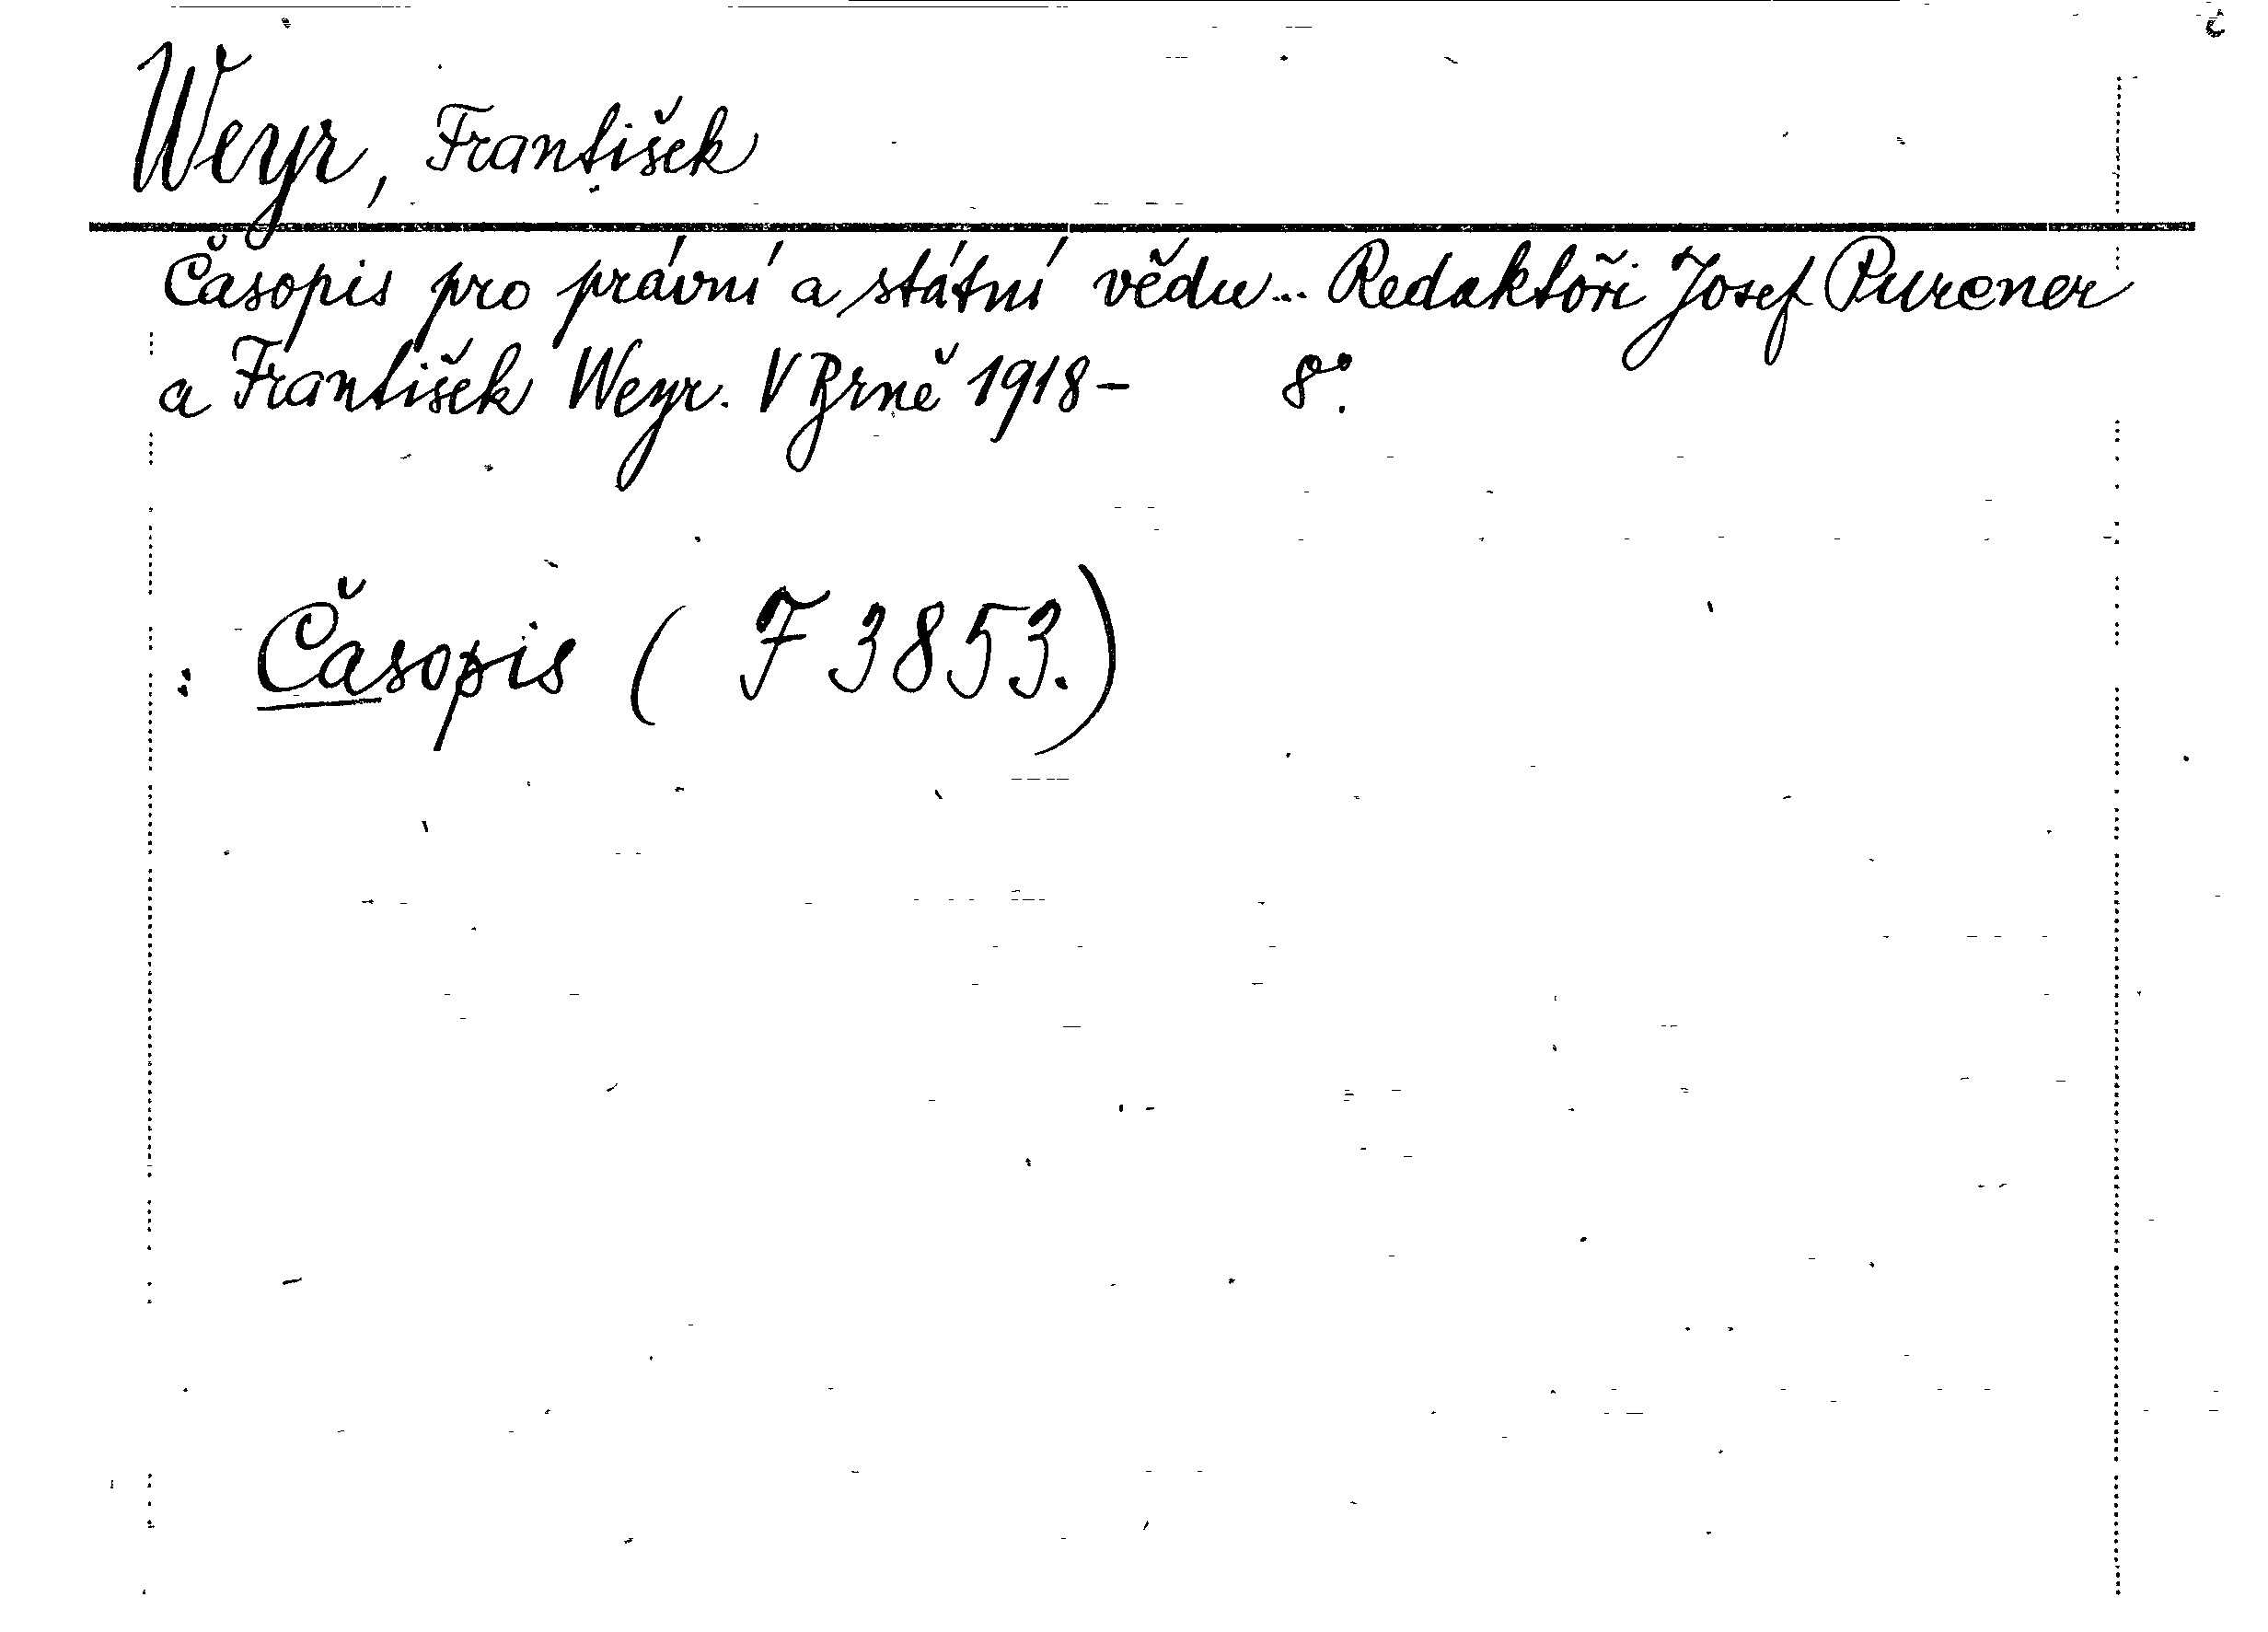 Weyr, František
Časopis pro právní a státní vědu... Redaktoři Josef Purcner
a František Weyr. V Brně 1918- 8°.
: Časopis ( F 3853.)